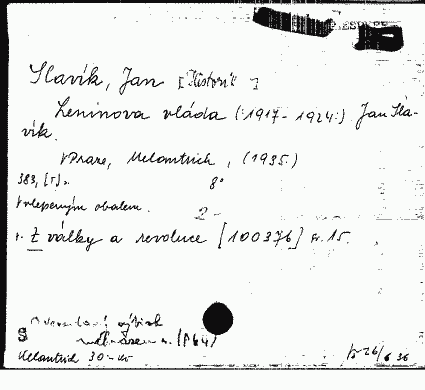 Slavík, Jan [Historik]
Leninova vláda (:1917-1924:). Jan Sla-
vík.
V Praze, Melantrich, (1935.)
383, [1] s. 8°
V olepeným obalem.
2-
Z války a revoluce [100376] sv. 15.
S
Melantrich 30-
26/6 36